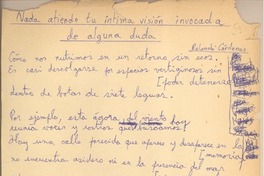 Nada atiende tu íntima visión invocada
de alguna duda
Rolando Cárdenas
Cómo nos nutrimos en un retorno sin ecos.
En casi descolgarse por espacios vertiginosos sin
[poder detenerse
dentro de botas de siete leguas.
Por ejemplo, esta ágora, del viento hoy
reunía voces y rostros que
Hay una calle perecida que aparece y desaparece en la
[memoria
no encuentra asidero ni en la presencia del mar